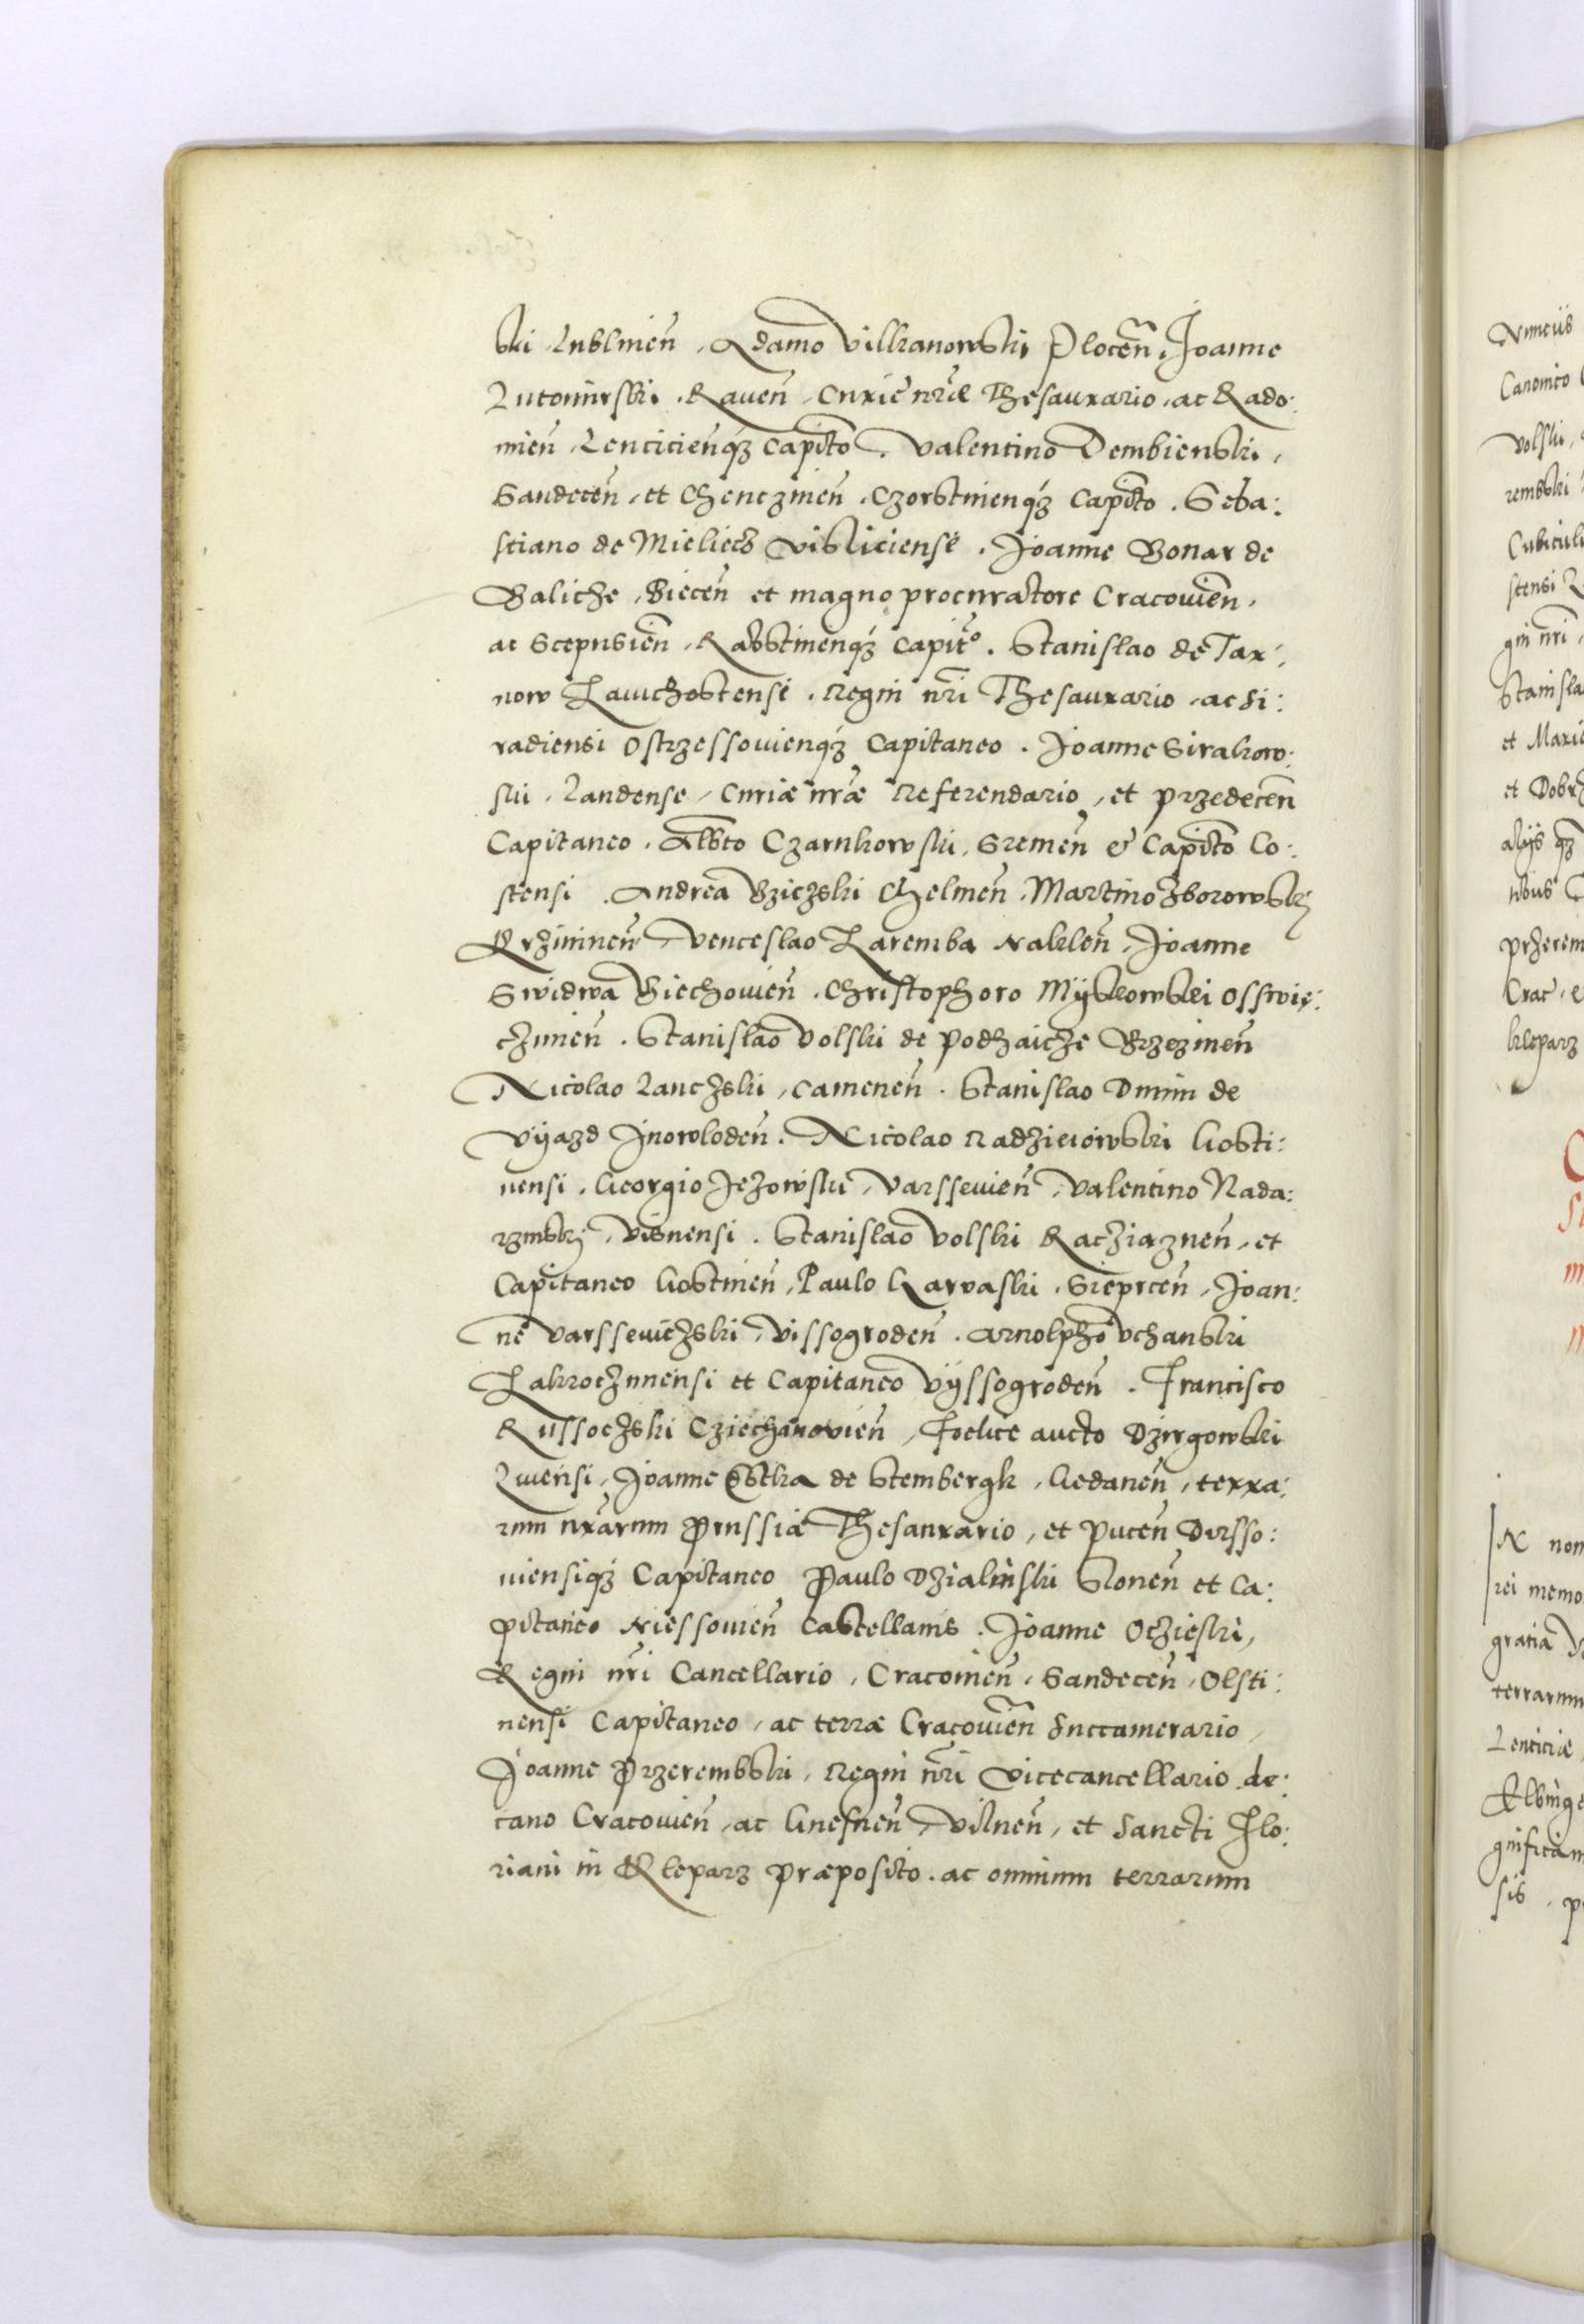 ski Lublinen̄, Adamo Vilkanowski Plocen̄, Joanne
Lutomirski. Raven̄, Curiæ nr̄æ Thesaurario, ac Rado:
mien̄, Lencicienq́ꝫ Capitō. Valentino Dembienski,
Sandecen̄, et Chenczinen̄, Czorstinenq́ꝫ Capitō. Seba:
stiano de Mieliecz Visliciensē. Joanne Bonar de
Balicze, Biecen̄ et magno procuratore Cracovien̄,
ac Scepusien̄, Rabstinenq́ꝫ Capitᵒ. Stanislao de Tar:
now Zawichostensē. Regni nr̄i Thesaurario, ac Si:
radiensi Ostrzessovienq́ꝫ Capitaneo. Joanne Sirakow:
ski, Landense, Curiæ nr̄æ Referendario, et Przedecen̄
Capitaneo. Alb̄to Czarnkowski, Sremen̄ & Capitō Co:
stensi. Andrea Bziczski Chelmen̄. Martino Zborowskj
Krzivinen̄, Venceslao Zaremba Naklen̄, Joanne
Swidwa Biechovien̄. Christophoro Mÿskowski Osswię:
czimen̄. Stanislao Volski de Podhaicze Brzezinen̄
Nicolao Lanczski, Camenen̄. Stanislao Dunin de
Vÿazd Inowloden̄. Nicolao Radzieiowski Gosti:
nensi. Georgio Jezowski, Varssevien̄, Valentino Nada:
rzinskj, Visnensi. Stanislao Volski Racziaznen̄, et
Capitaneo Gostinen̄, Paulo Garvaski. Sieprcen̄, Joan:
ne Varsseviczski, Vissogroden̄. Arnolpho Uchanski
Zakroczimensi et Capitaneo Vÿssogroden̄. Francisco
Russoczski Cziechanovien̄, Foelice aucto Dzirgowski
Livensi, Joanne Cōstka de Stembergk, Gedanen̄, terra:
rum nr̄arum Prussiæ Thesaurario, et Pucen̄ Dirsso:
viensiq́ꝫ Capitaneo Paulo Dzialinski Slonen̄ et Ca:
pitaneo Niessovien̄ Castellanis. Joanne Oczieski,
Regni nr̄i Cancellario, Cracovien̄, Sandecen̄, Olsti:
nensi Capitaneo, ac terræ Cracovien̄ Succamerario,
Joanne Przerembski, Regni nr̄i Vicecancellario de:
cano Cracovien̄, ac Gnesnen̄, Vilnen̄, et Sancti Flo:
riani in Kleparz Præposito. ac omnium terrarum